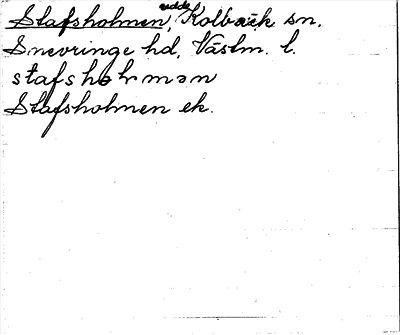 Stafsholmen, udde, Kolbäck sn.
Snevringe hd, Västm. l.
stafshɷlmən
Stafsholmen ek.